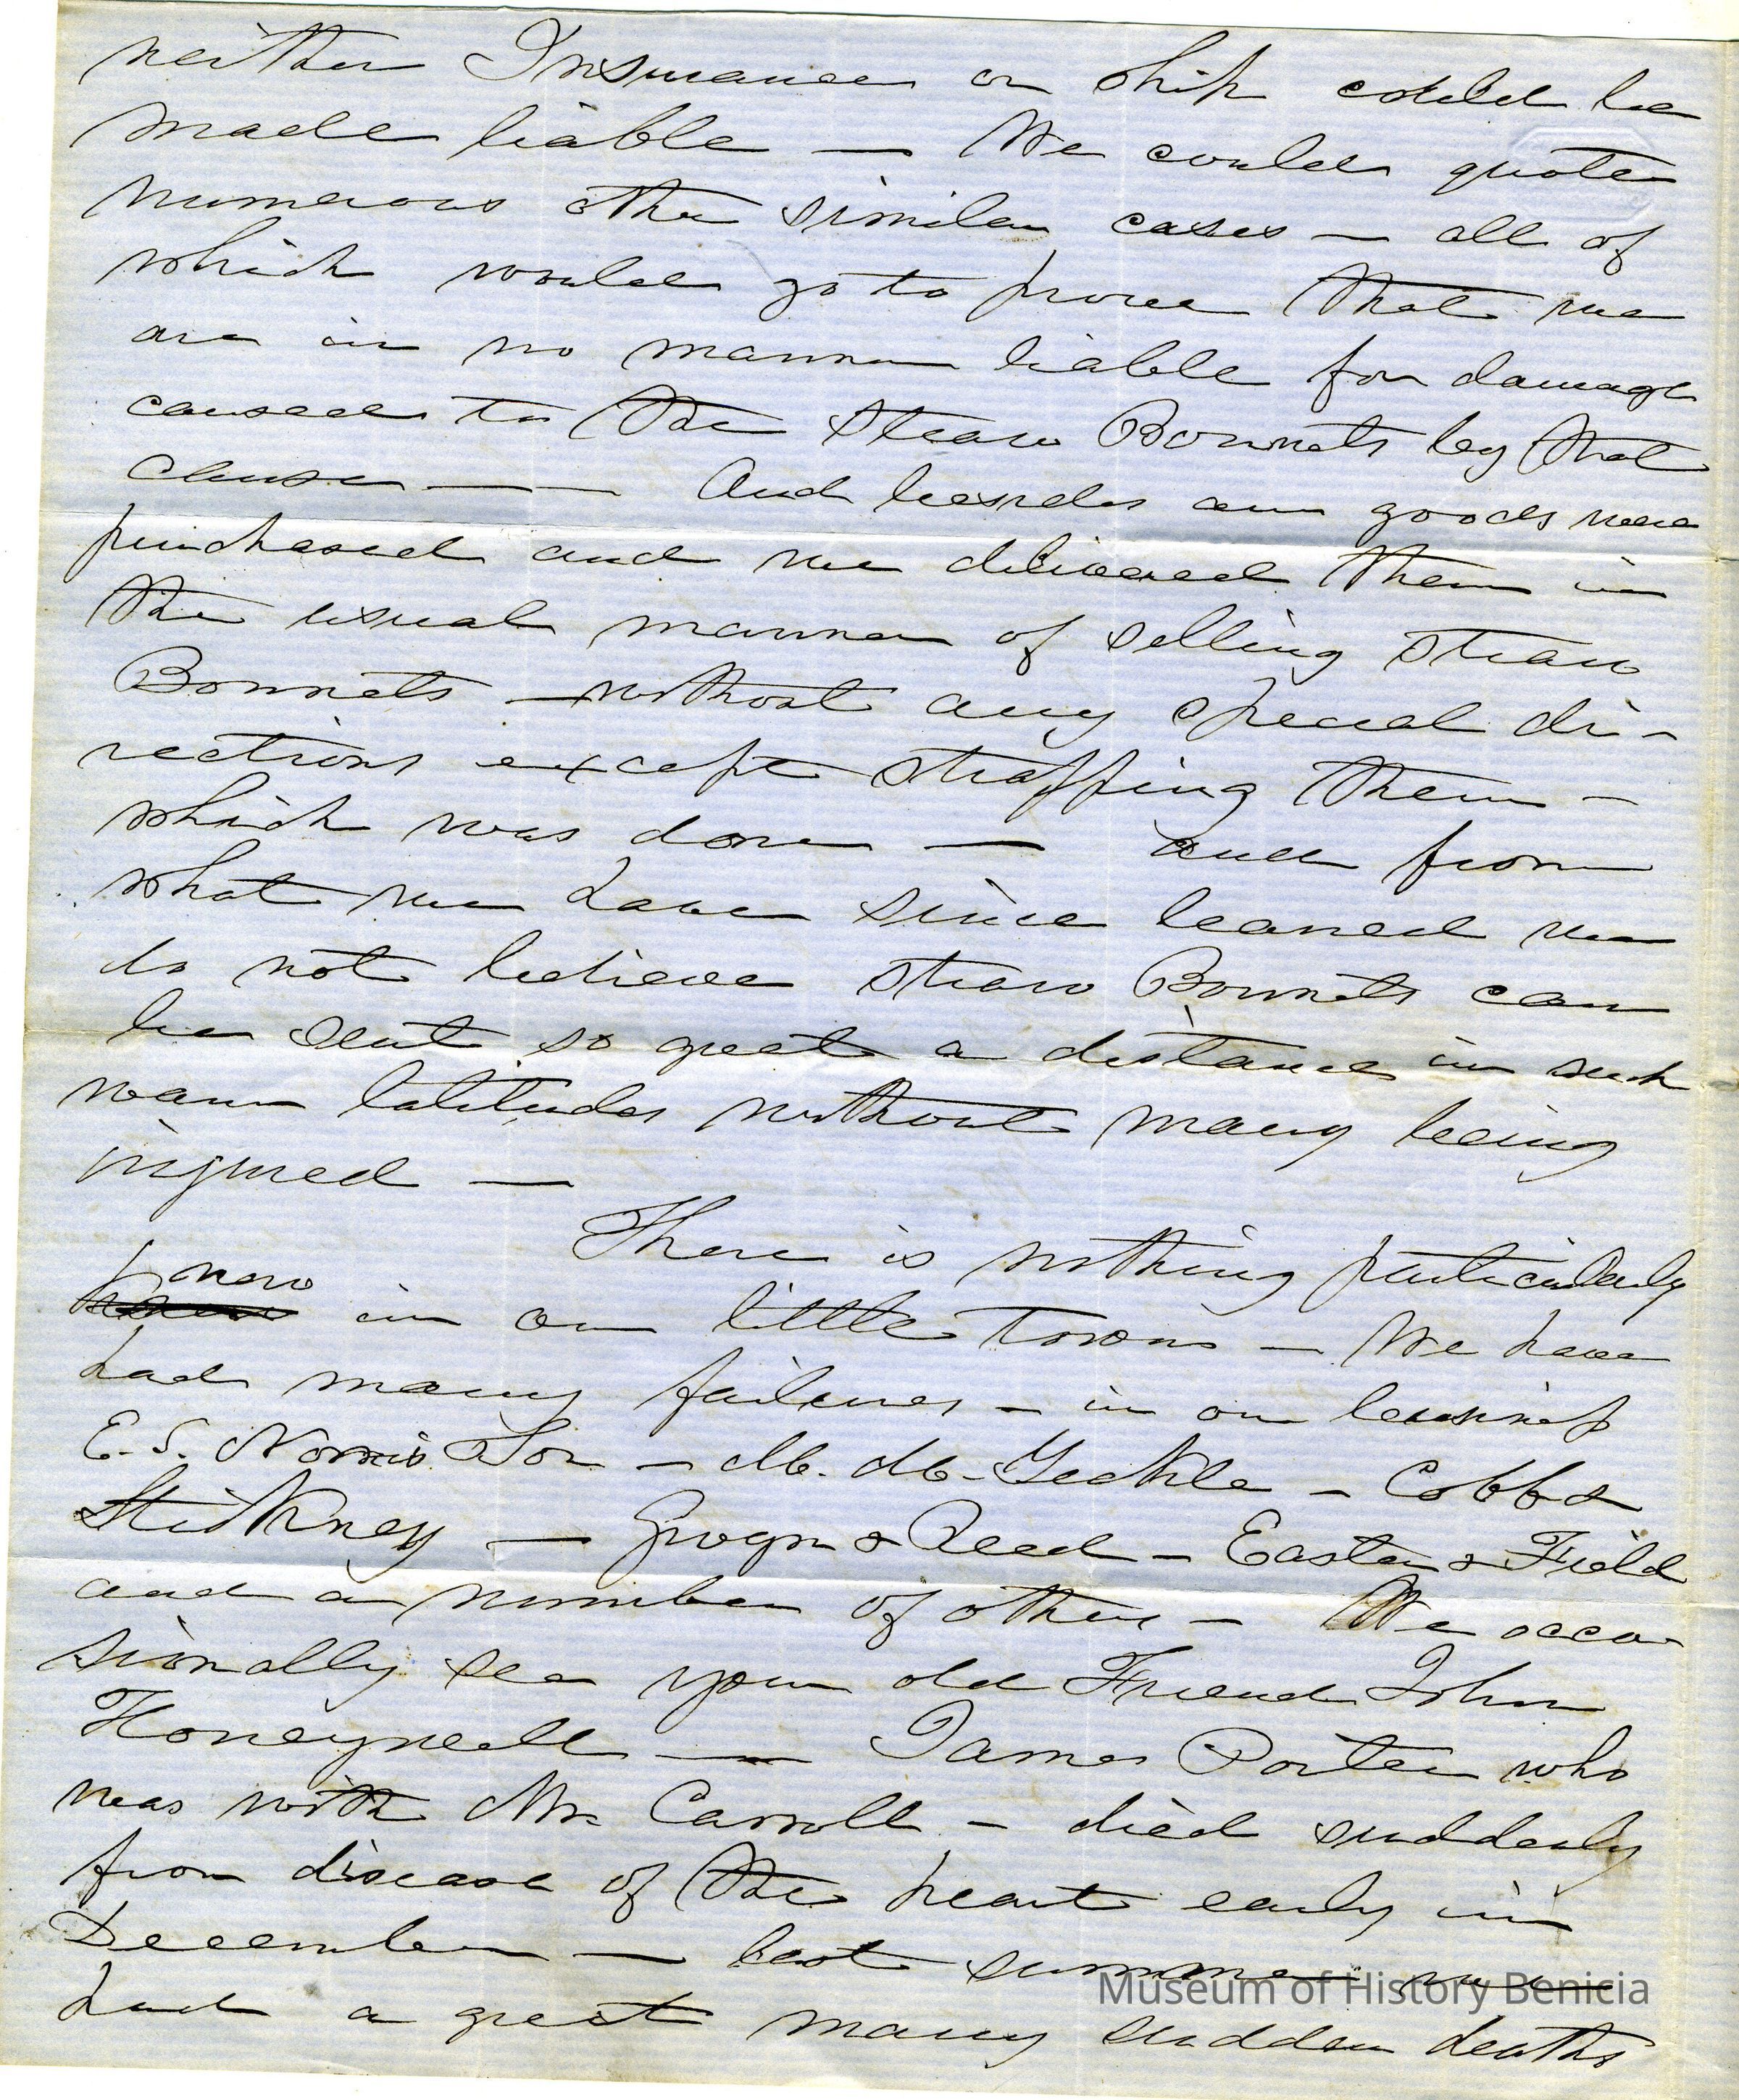 neither Insurance or ship could be
made liable — We could quote
numerous other similar cases — all of
which would go to prove that we
are in no manner liable for damage
caused to the Straw Bonnets by that
clause —— And besides our goods were
purchased and we delivered them in
the usual manner of selling Straw
Bonnets — without any special di-
rections except strapping them —
which was done — and from
what we have since learned we
do not believe Straw Bonnets can
be sent so great a distance in such
warm latitudes without many being
injured —
There is nothing particularly
new
in our little Town — We have
had many failures — in our business
E. S. Norris Son — — Cobb &
Stickney — & Reed — Easter & Field
and a number of others — We occa-
sionally see your old Friend John
Honeywell — James Porter who
was with Mr. Carroll — died suddenly
from disease of the heart early in
December — last summer we
had a great many sudden deaths
Museum of History Benicia